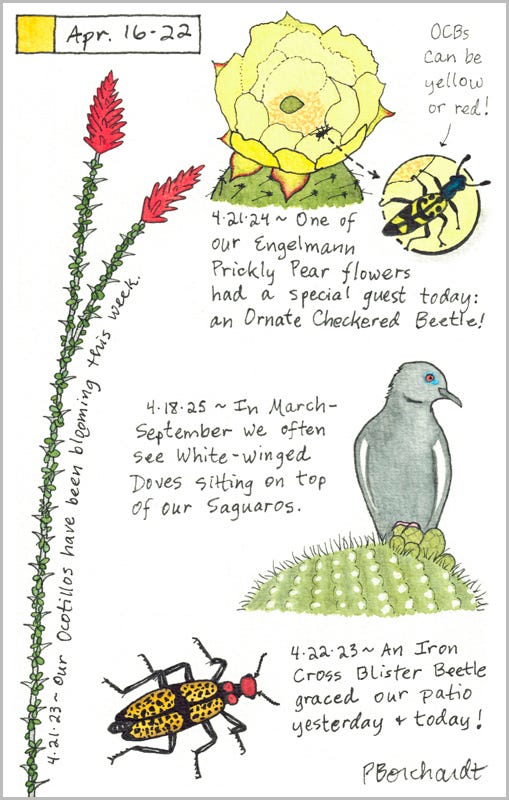 Apr. 16-22
OCBs
can be
yellow
or red!
4·21·24 ~ One of
our Engelmann
Prickly Pear flowers
had a special guest today:
an Ornate Checkered Beetle!
4·21·23 ~ Our Ocotillos have been blooming this week.
4·18·25 ~ In March-
September we often
see White-winged
Doves sitting on top
of our Saguaros.
4·22·23 ~ An Iron
Cross Blister Beetle
graced our patio
yesterday + today!
PBorchardt